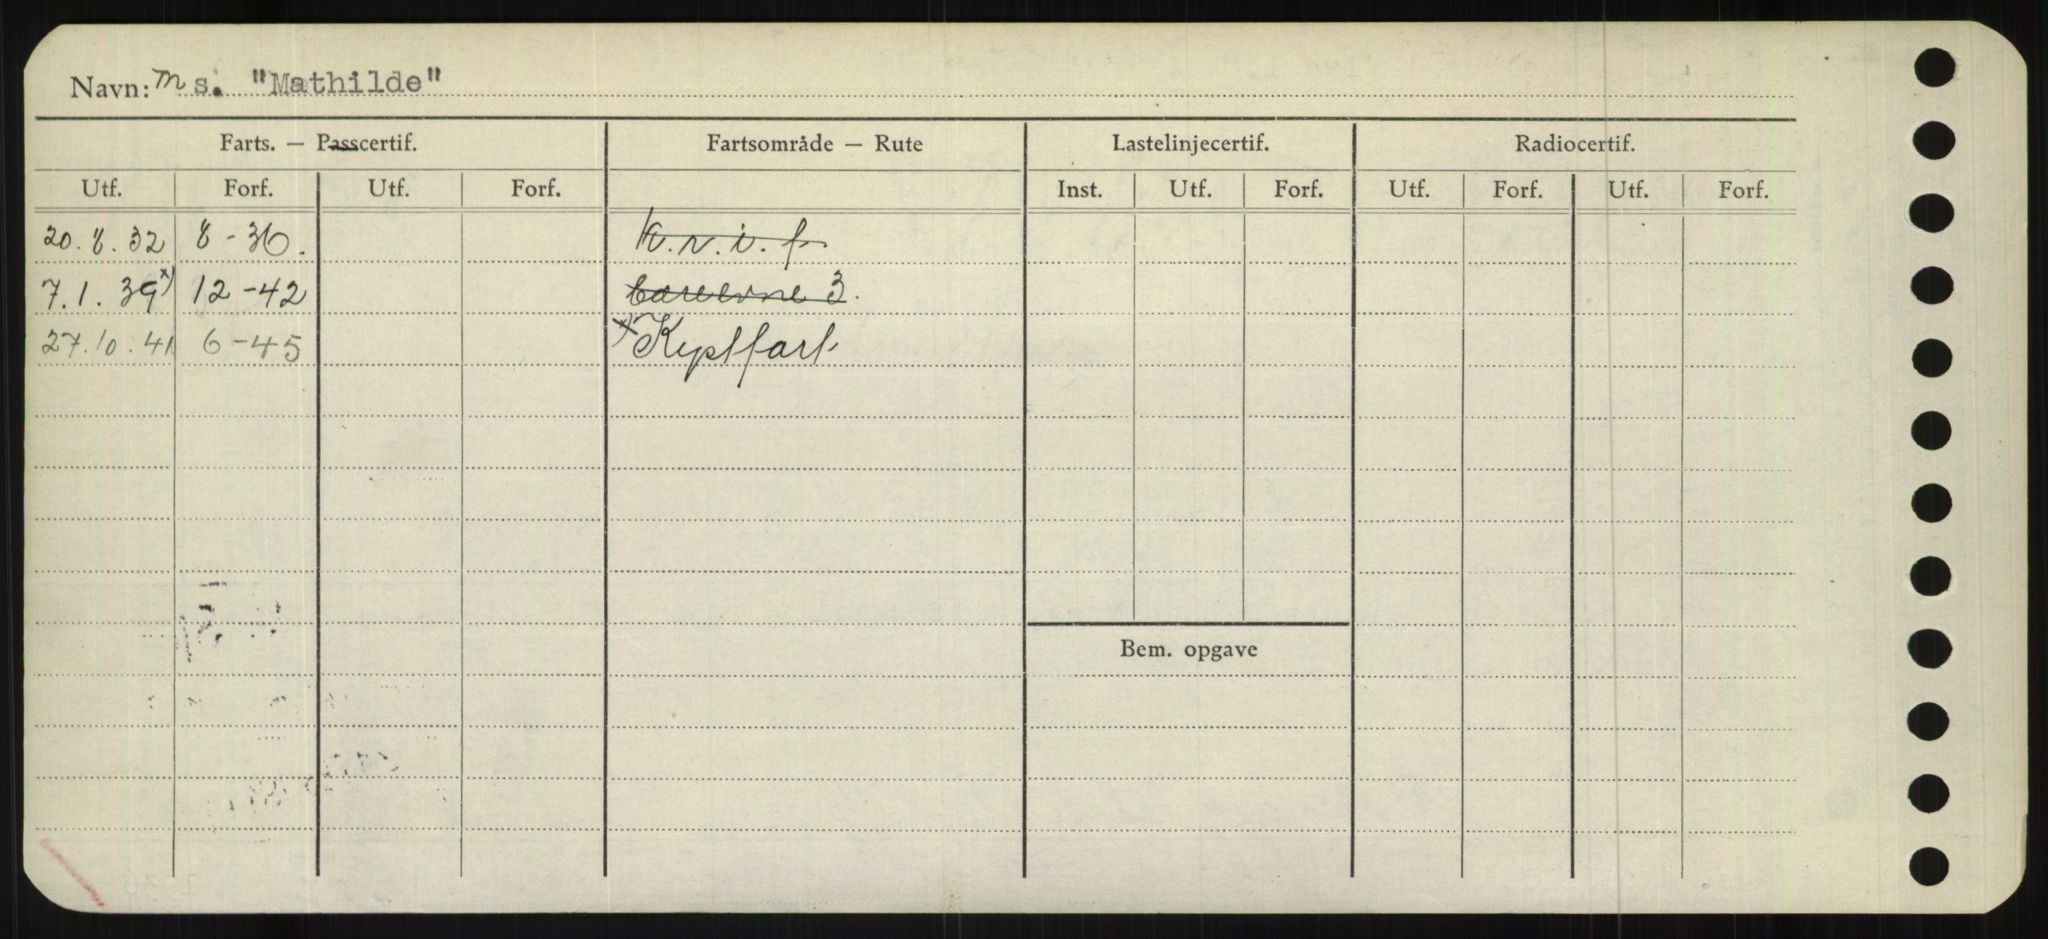 Navn: Ms. "Mathilde"
Farts. — Passcertif. Fartsområde — Rute Lastelinjecertif. Radiocertif.
Utf. Forf. Utf. Forf. Inst. Utf. Forf. Utf. Forf. Utf. Forf.
20.8.32 8-36. K.r.i.f.
7.1.39 x) 12-42 3.
27.10.41 6-45 x) Kystfart
Bem. opgave